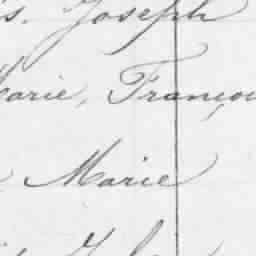 s. Joseph
Marie, Françoi
Marie